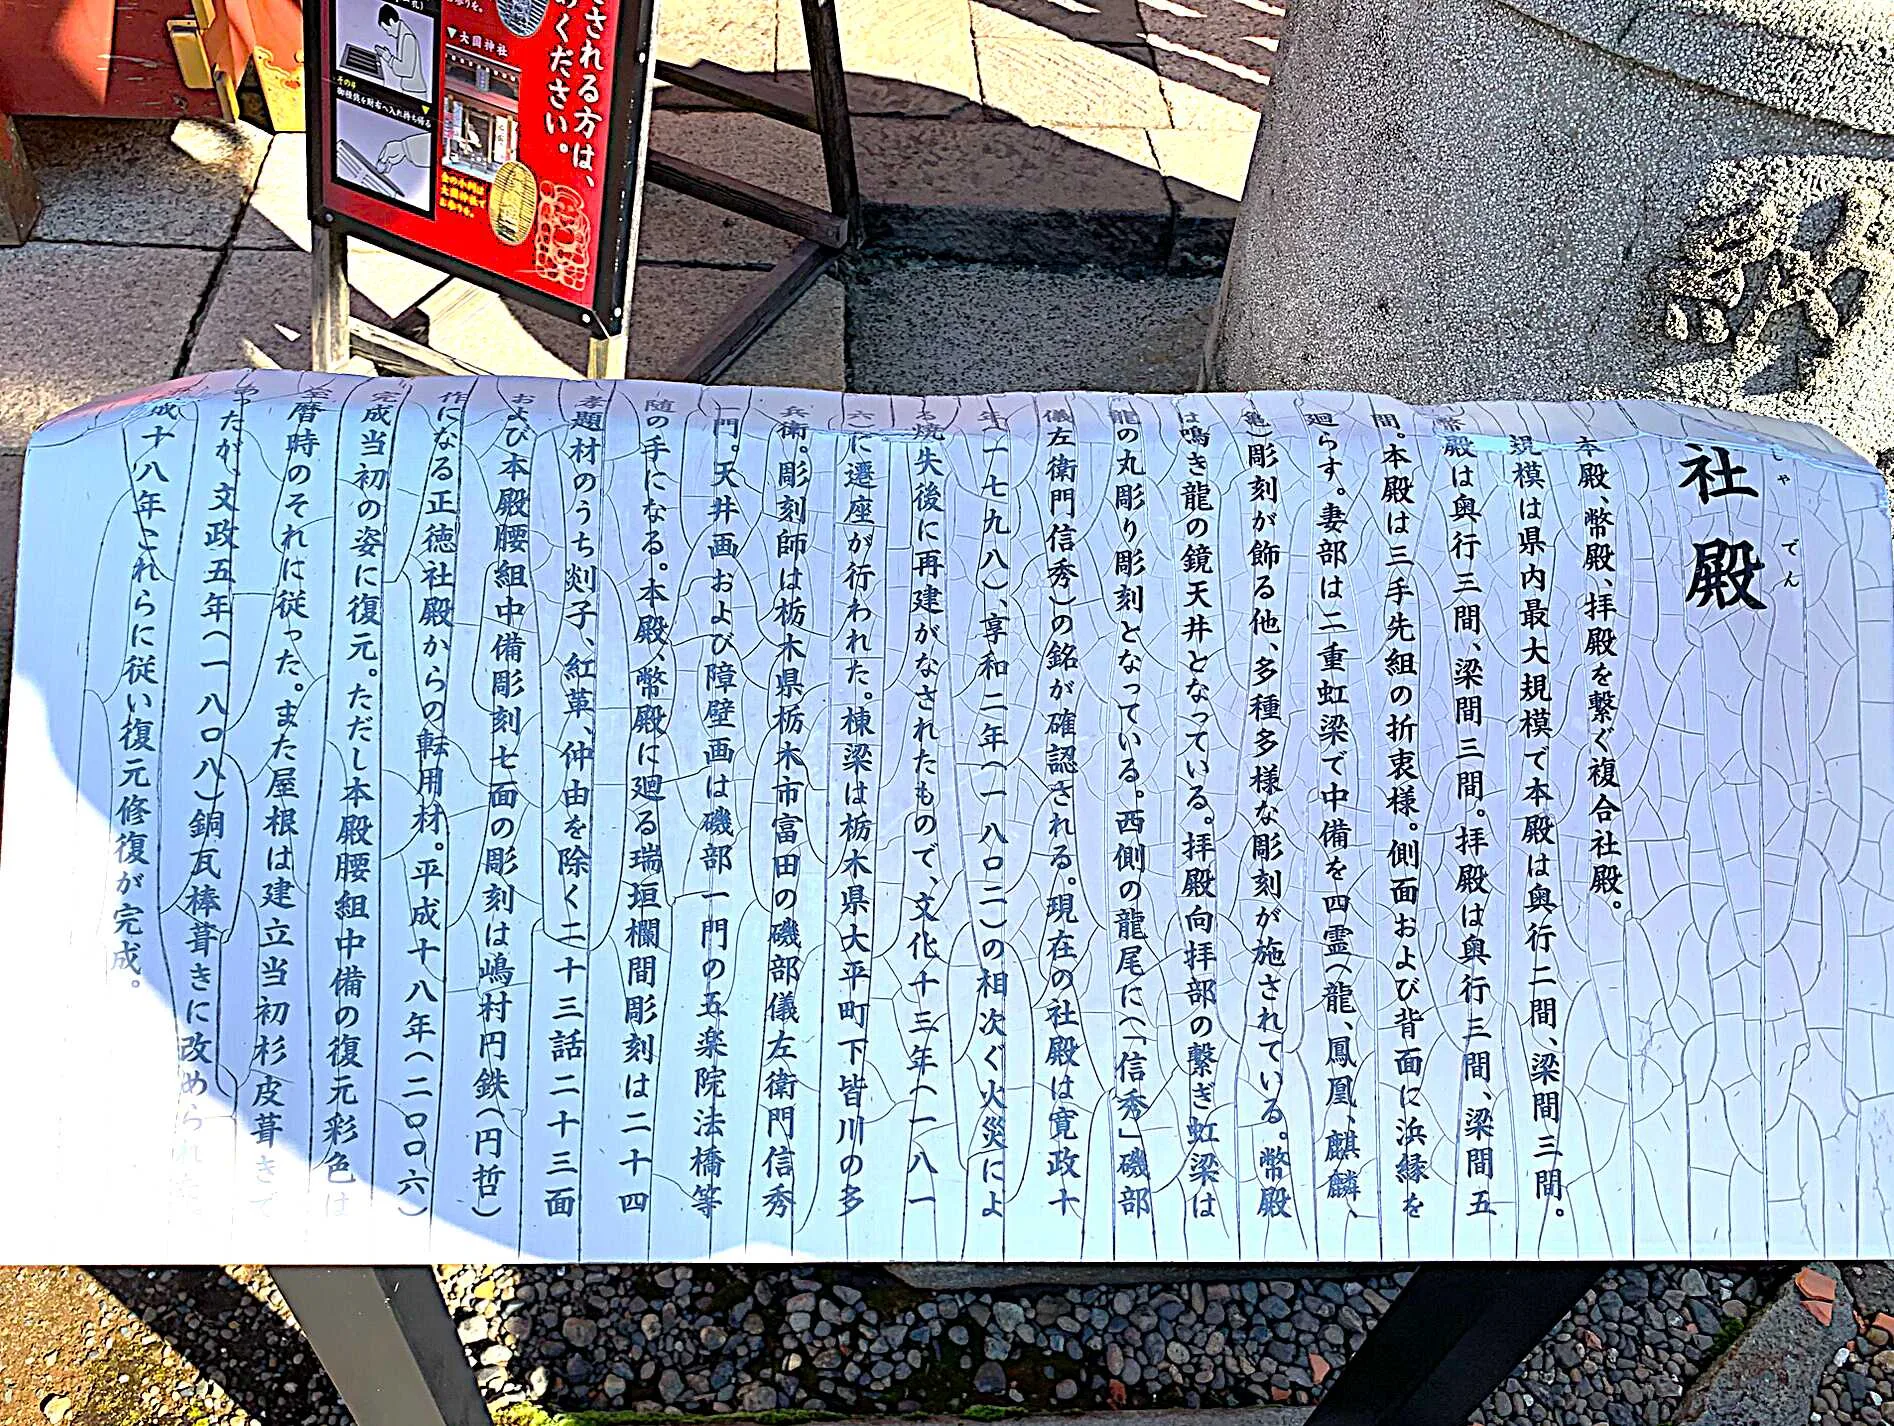 社殿
しゃでん
本殿、幣殿、拝殿を繋ぐ複合社殿。
規模は県内最大規模で本殿は奥行二間、梁間三間。
幣殿は奥行三間、梁間三間。拝殿は奥行三間、梁間五
間。本殿は三手先組の折衷様。側面および背面に浜縁を
廻らす。妻部は二重虹梁で中備を四霊(龍、鳳凰、麒麟、
亀)彫刻が飾る他、多種多様な彫刻が施されている。幣殿
は鳴き龍の鏡天井となっている。拝殿向拝部の繋ぎ虹梁は
龍の丸彫り彫刻となっている。西側の龍尾に(「信秀」磯部
儀左衛門信秀)の銘が確認される。現在の社殿は寛政十
年(一七九八)、享和二年(一八〇二)の相次ぐ火災によ
る焼失後に再建がなされたもので、文化十三年(一八一
六)に遷座が行われた。棟梁は栃木県大平町下皆川の多
兵衛。彫刻師は栃木県栃木市富田の磯部儀左衛門信秀
一門。天井画および障壁画は磯部一門の五楽院法橋等
随の手になる。本殿、幣殿に廻る瑞垣欄間彫刻は二十四
孝題材のうち剡子、紅革、仲由を除く二十三話二十三面
および本殿腰組中備彫刻七面の彫刻は嶋村円鉄(円哲)
作になる正徳社殿からの転用材。平成十八年(二〇〇六)
完成当初の姿に復元。ただし本殿腰組中備の復元彩色は
宝暦時のそれに従った。また屋根は建立当初杉皮葺きで
あったが、文政五年(一八〇八)銅瓦棒葺きに改められた。
成十八年これらに従い復元修復が完成。
される方は、
ください。
▼大国神社
その4
御種銭を財布へ入れ持ち帰る
金の小判は
大国神社で